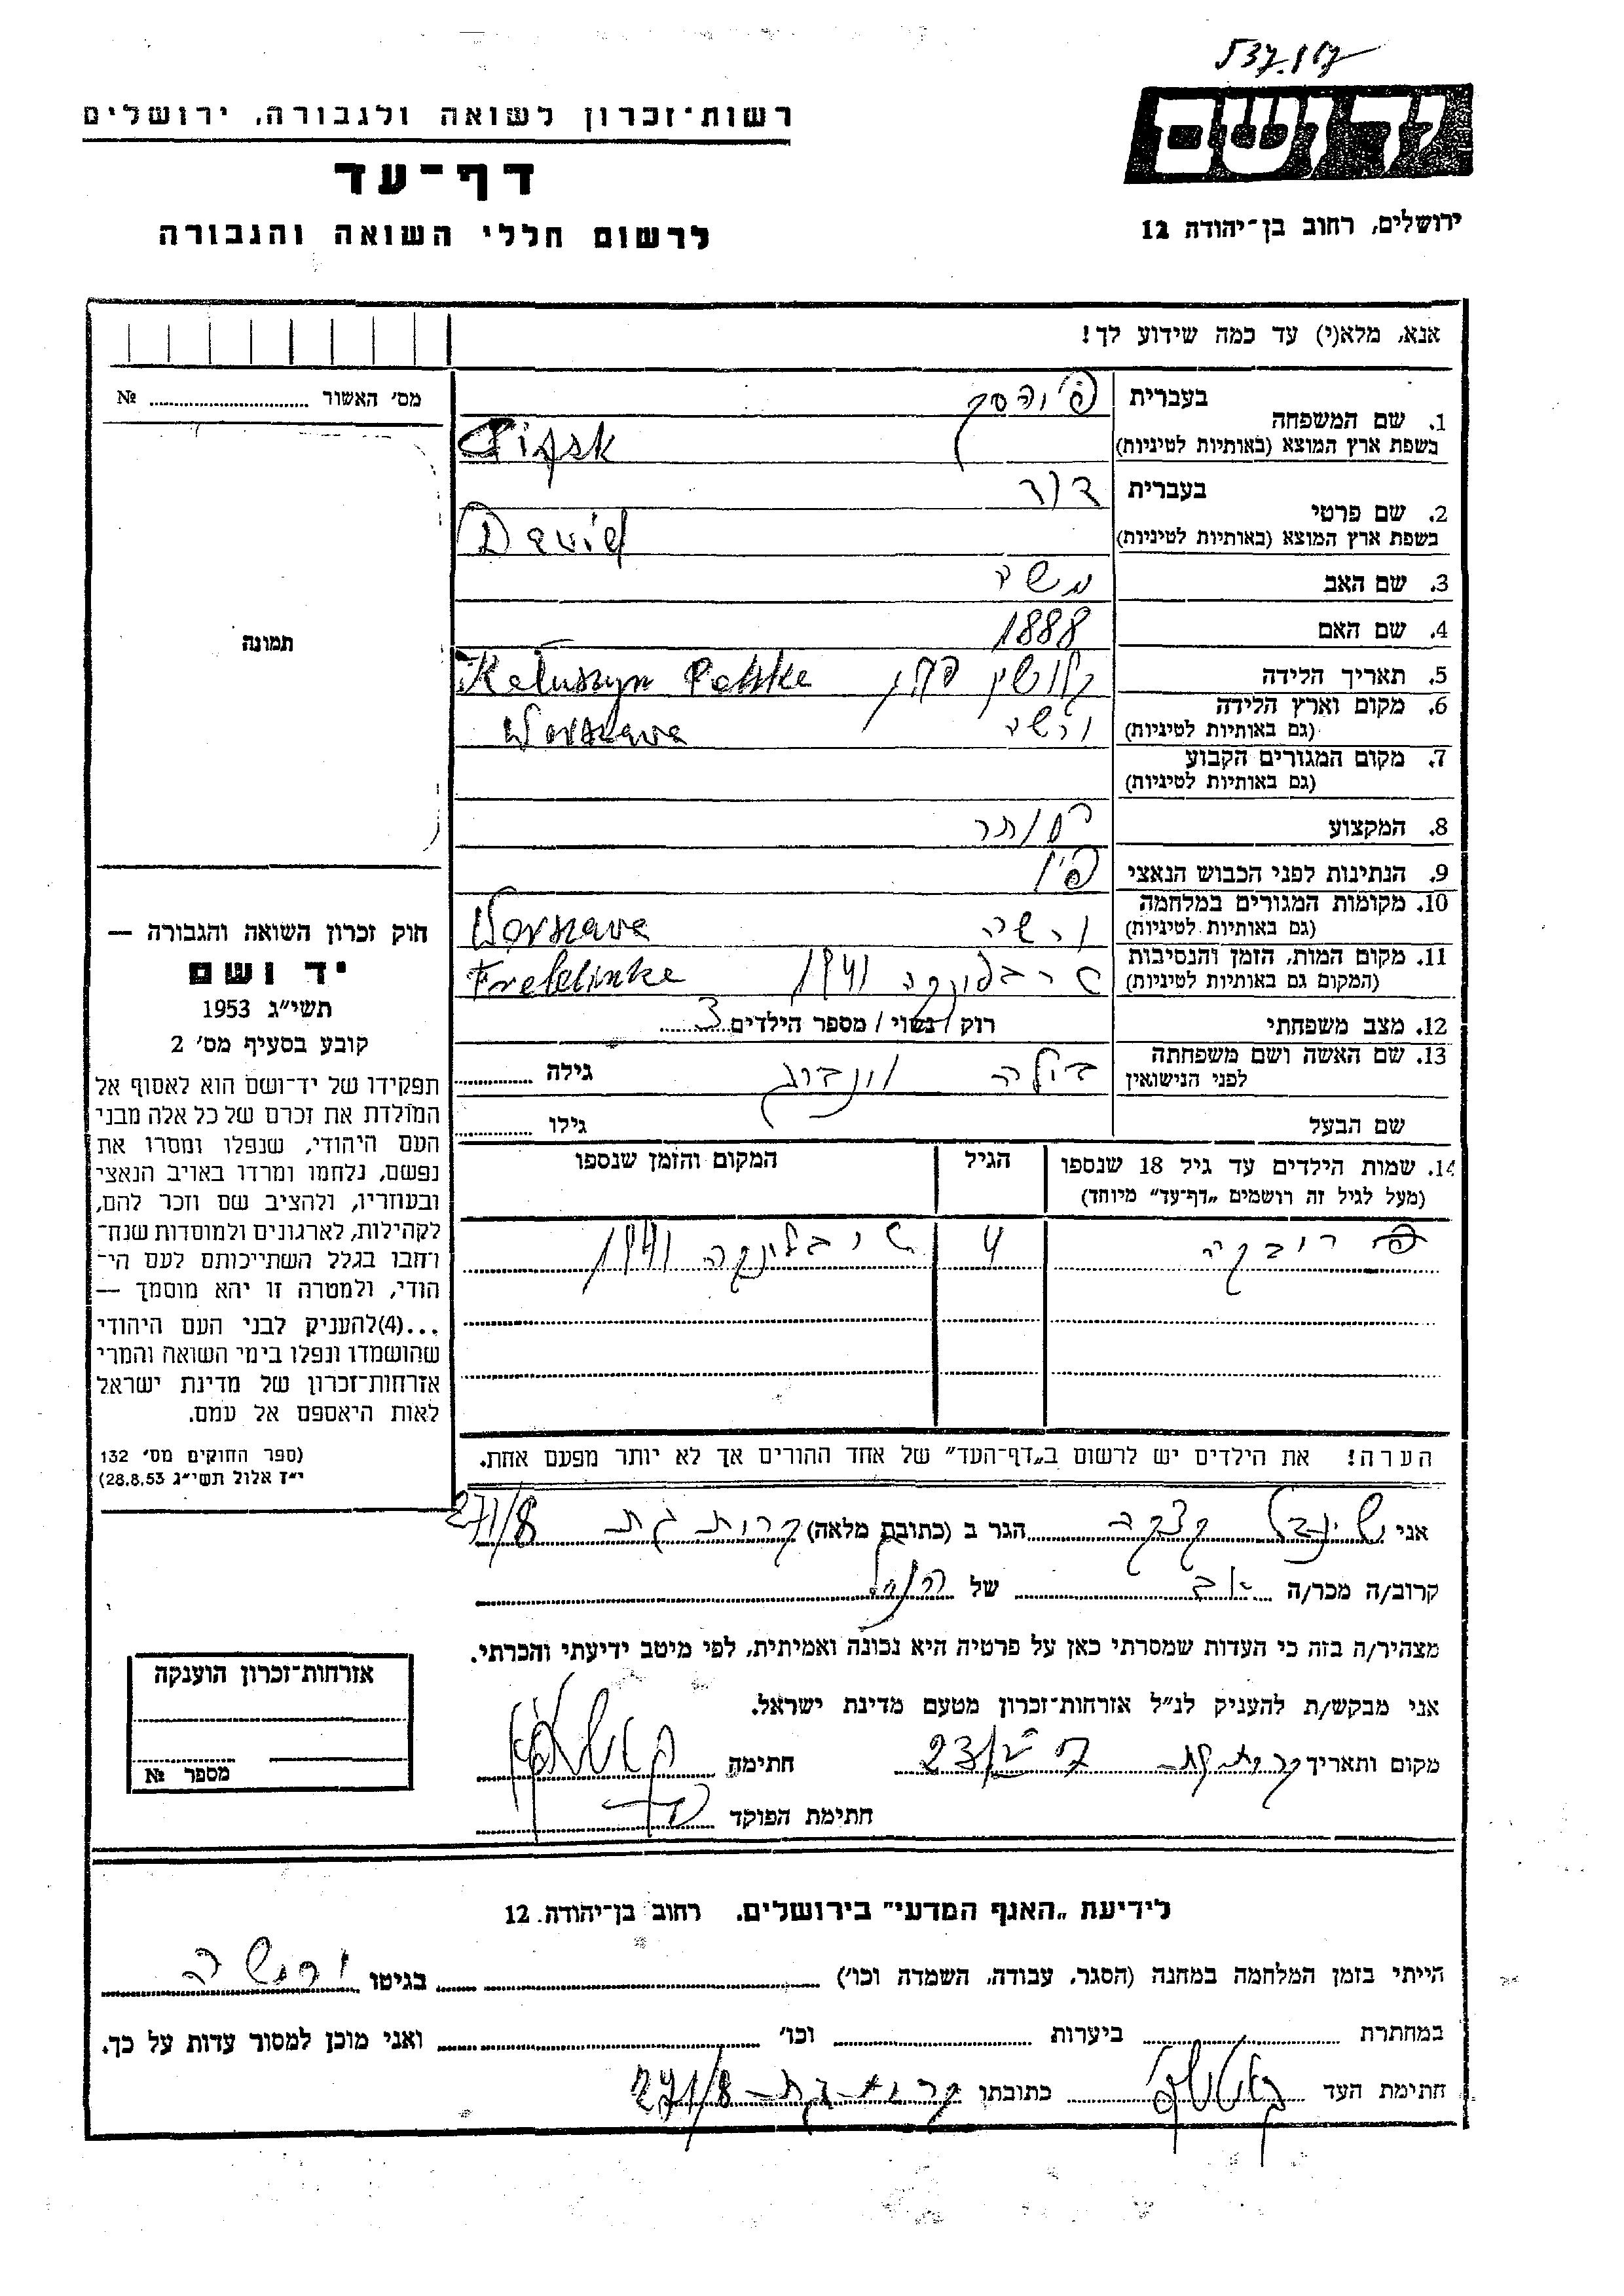 רשות־זכרון לשואה ולגבורה, ירושלים
דף־עד
לרשום חללי השואה והגבורה
ידושם
ירושלים, רחוב בן־יהודה 12
אנא, מלא(י) עד כמה שידוע לך!
מס׳ האשור № 
תמונה
1. שם המשפחה
בעברית
בשפת ארץ המוצא (באותיות לטיניות)
2. שם פרטי
בעברית דוד
בשפת ארץ המוצא (באותיות לטיניות) David
3. שם האב משה
4. שם האם 1888
5. תאריך הלידה
6. מקום וארץ הלידה
(גם באותיות לטיניות) ורשה Warszawa
7. מקום המגורים הקבוע
(גם באותיות לטיניות)
8. המקצוע סוחר
9. הנתינות לפני הכבוש הנאצי
10. מקומות המגורים במלחמה
(גם באותיות לטיניות) ורשה Warszawa
11. מקום המות, הזמן והנסיבות
(המקום גם באותיות לטיניות) טרבלינקה 1941 Treblinke
12. מצב משפחתי רוק / נשוי / מספר הילדים 3
13. שם האשה ושם משפחתה
לפני הנישואין גילה
שם הבעל גילו
14. שמות הילדים עד גיל 18 שנספו
(מעל לגיל זה רושמים „דף־עד״ מיוחד)
הגיל
המקום והזמן שנספו
רובקה 4 טרבלינקה 1941
הערה! את הילדים יש לרשום ב„דף־העד״ של אחד ההורים אך לא יותר מפעם אחת.
חוק זכרון השואה והגבורה —
יד ושם
תשי״ג 1953
קובע בסעיף מס׳ 2
תפקידו של יד־ושם הוא לאסוף אל
המולדת את זכרם של כל אלה מבני
העם היהודי, שנפלו ומסרו את
נפשם, נלחמו ומרדו באויב הנאצי
ובעוזריו, ולהציב שם וזכר להם,
לקהילות, לארגונים ולמוסדות שנח־
רחבו בגלל השתייכותם לעם הי־
הודי, ולמטרה זו יהא מוסמך —
...(4)להעניק לבני העם היהודי
שהושמדו ונפלו בימי השואה והמרי
אזרחות־זכרון של מדינת ישראל
לאות היאספם אל עמם.
(ספר החוקים מס׳ 132
י״ז אלול תשי״ג 28.8.53)
אני הגר ב (כתובת מלאה) קרית גת 271/8
קרוב/ה מכר/ה של הנ״ל
מצהיר/ה בזה כי העדות שמסרתי כאן על פרטיה היא נכונה ואמיתית, לפי מיטב ידיעתי והכרתי.
אני מבקש/ת להעניק לנ״ל אזרחות־זכרון מטעם מדינת ישראל.
מקום ותאריך קרית גת חתימה
חתימת הפוקד
אזרחות־זכרון הוענקה
מספר №
לידיעת „האגף המדעי״ בירושלים. רחוב בן־יהודה 12
הייתי בזמן המלחמה במחנה (הסגר, עבודה, השמדה וכו׳) בגיטו ורשה
במחתרת ביערות וכו׳ ואני מוכן למסור עדות על כך.
חתימת העד כתובתו קרית גת 271/8